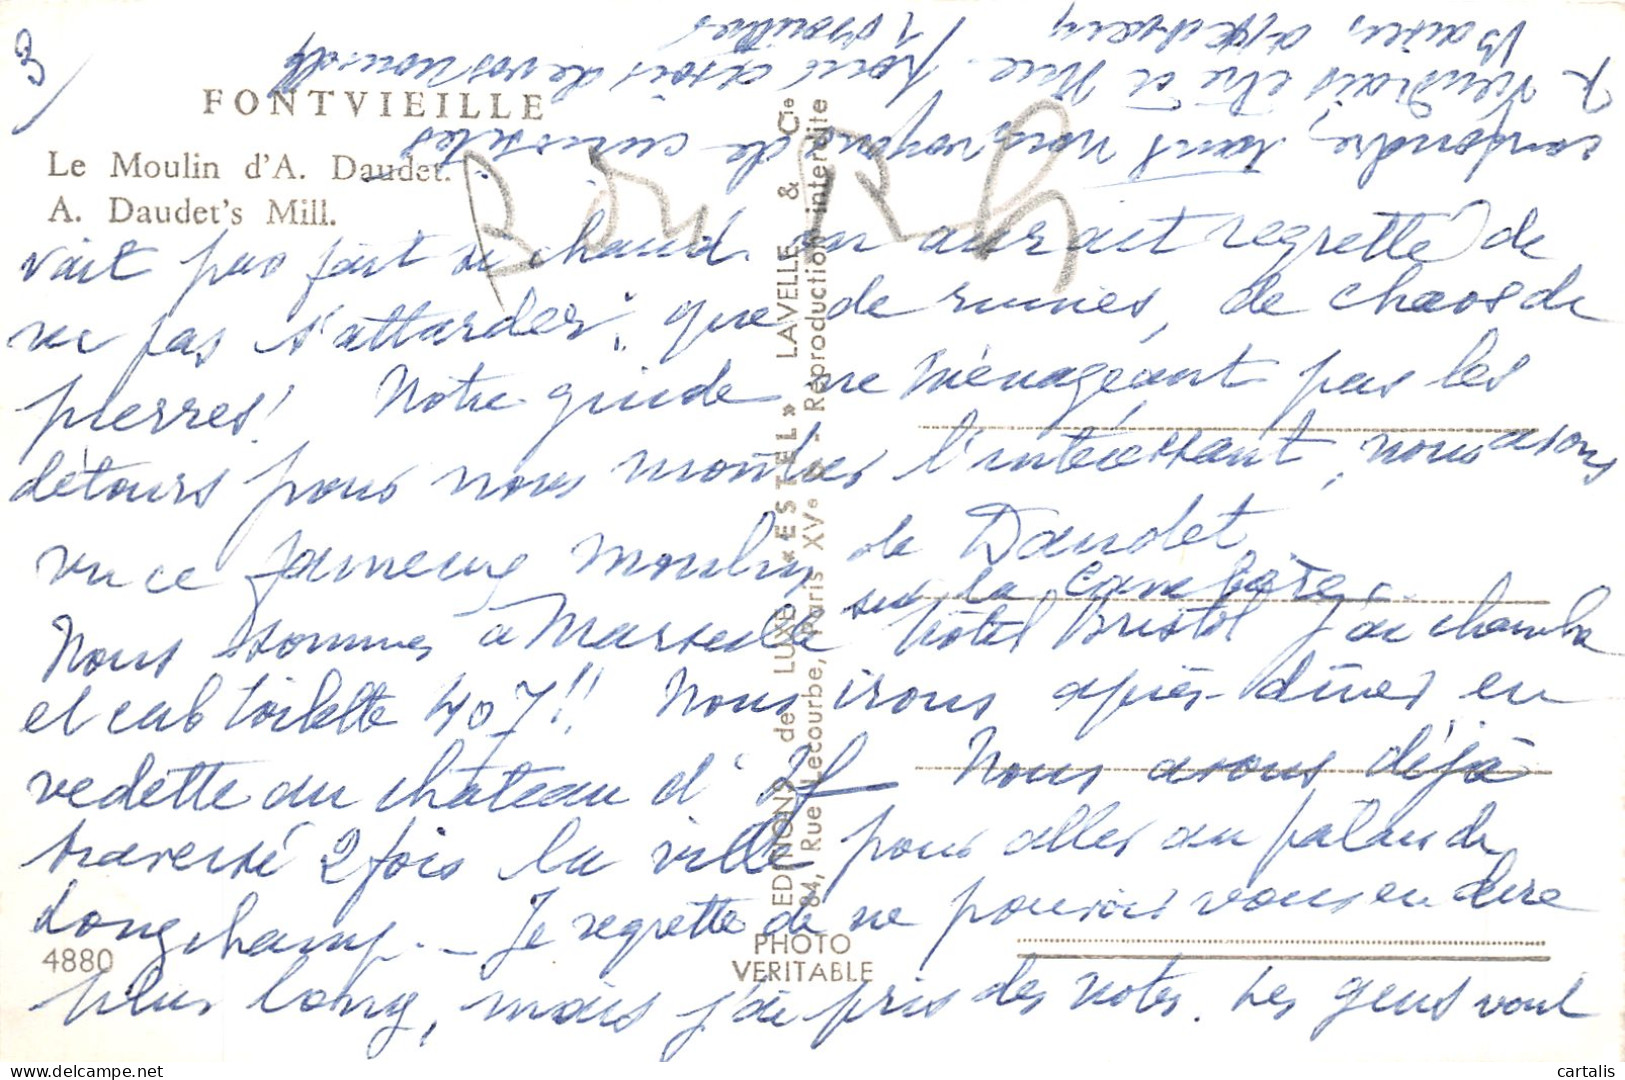 3
FONTVIEILLE
Le Moulin d'A. Daudet.
A. Daudet's Mill.
vait pas fait si chaud. on aurait regretté de
ne pas s'attarder, que de ruines, de chaos de
pierres! Notre guide ne ménageant pas les
détours pour nous montrer l'intéressant, nous avons
vu ce fameux moulin de Daudet.
sur la canebière
Nous sommes à Marseille hôtel Bristol j'ai chambre
et cab toilette 407!! Nous irons après-diner en
vedette au château d'If Nous avons déjà
traversé 2 fois la ville pour aller au palais de
Longchamp. - Je regrette de ne pouvoir vous en dire
plus long, mais j'ai pris des notes. Les gens vont
confondre, tant nous voyons de curiosités
Je voudrais être à Nice pour avoir de vos nouvelles
Baisers affectueux
EDITIONS de LUXE « ESTEL » LAVELLE & Cie
84, Rue Lecourbe, Paris XVe - Reproduction interdite
PHOTO
VERITABLE
4880
cartalis